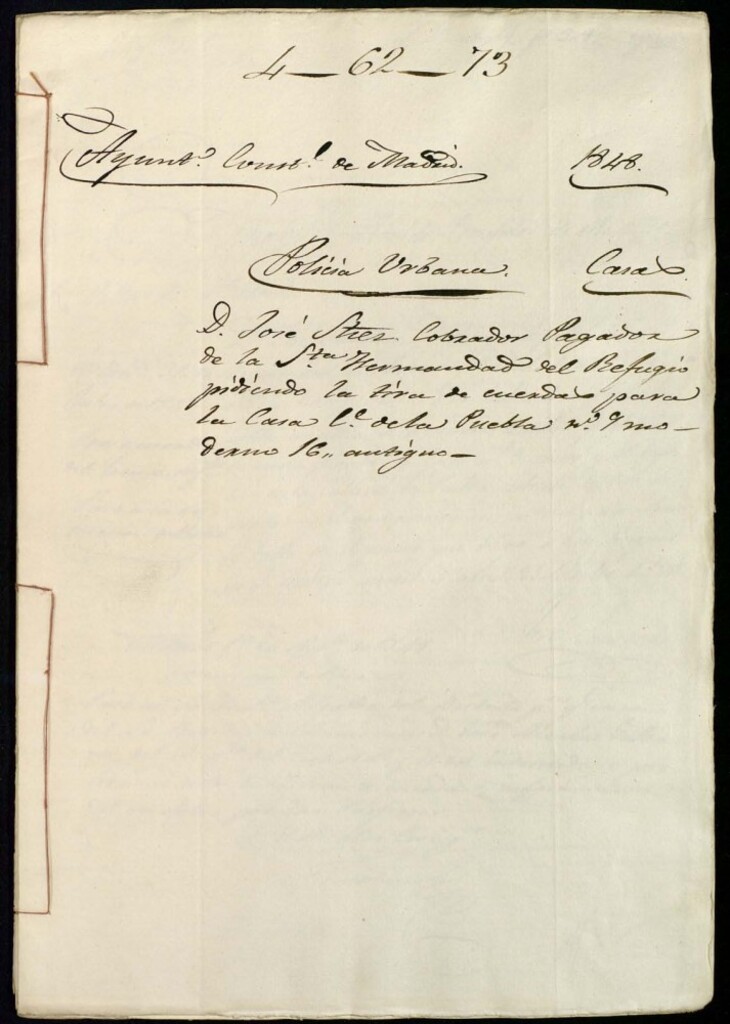 4—62—73
Ayunt.º Const.l de Madrid. 1848.
Policia Urbana. Casas
D. José Stier Cobrador Pagador
de la S.ta Hermandad del Refugio
pidiendo la tira de cuerdas para
la Casa C.e de la Puebla n.º 9 mo-
derno 16,, antiguo—